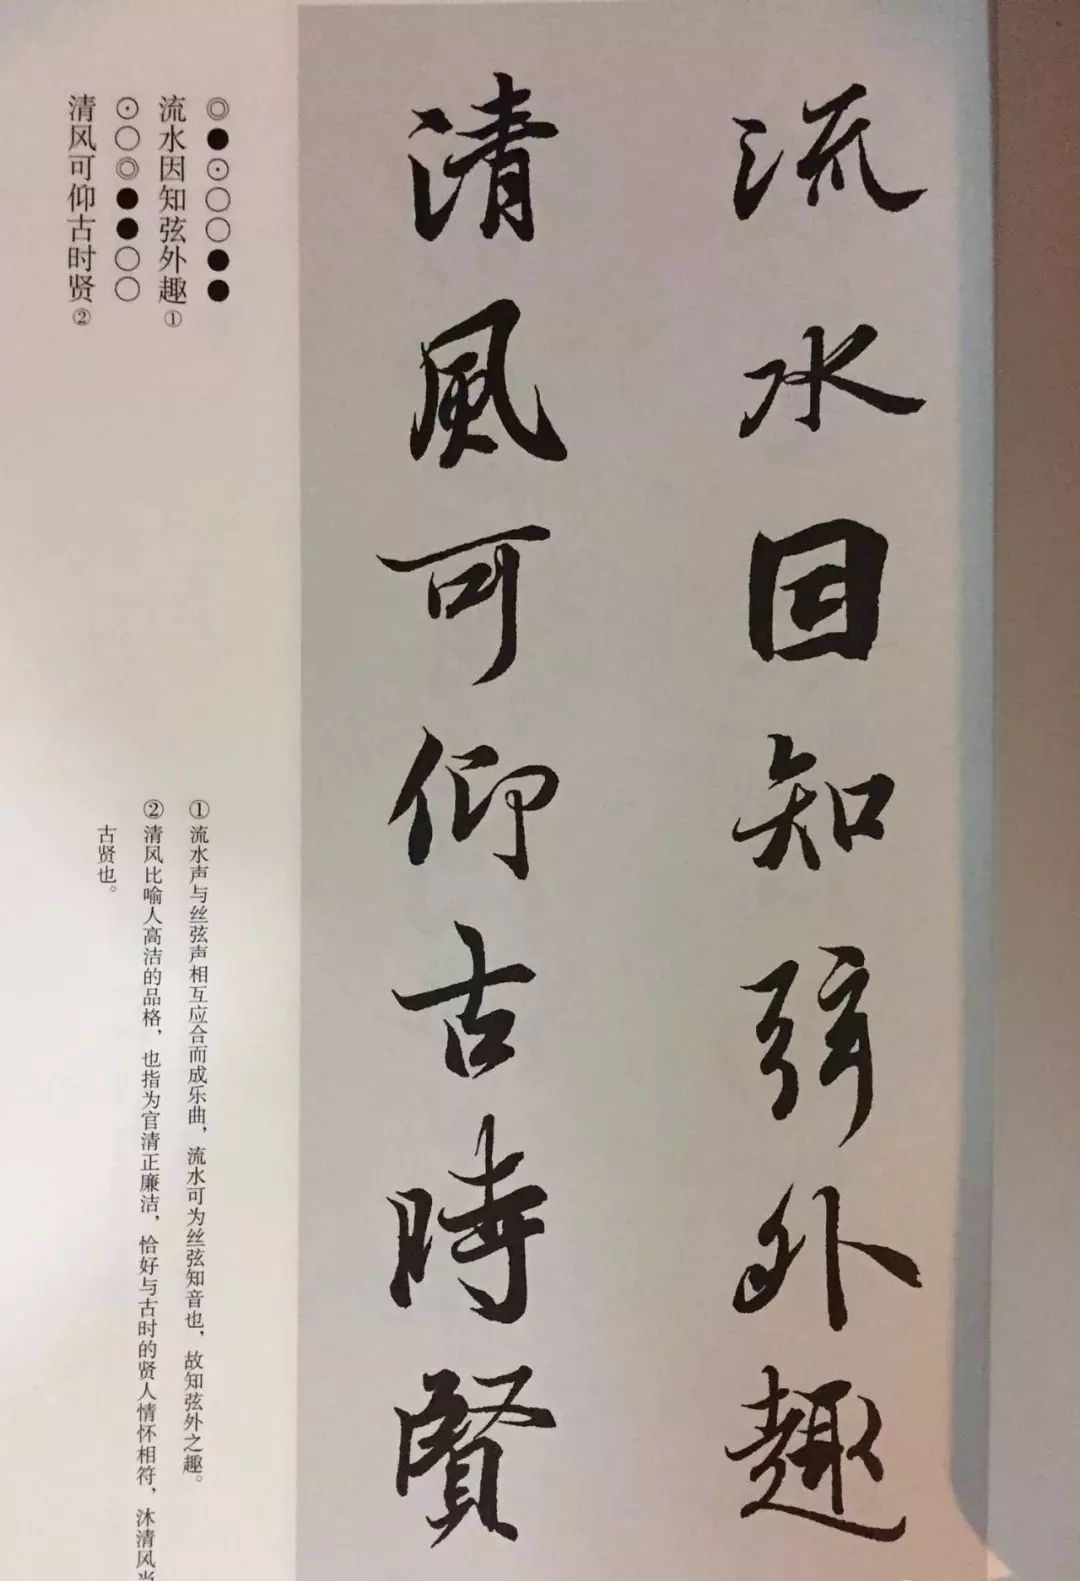 流水因知弦外趣
清風可仰古時賢
◎●⊙○○●●
流水因知弦外趣①
⊙○◎●●○○
清风可仰古时贤②
①流水声与丝弦声相互应合而成乐曲，流水可为丝弦知音也，故知弦外之趣。
②清风比喻人高洁的品格，也指为官清正廉洁，恰好与古时的贤人情怀相符，沐清风当
古贤也。